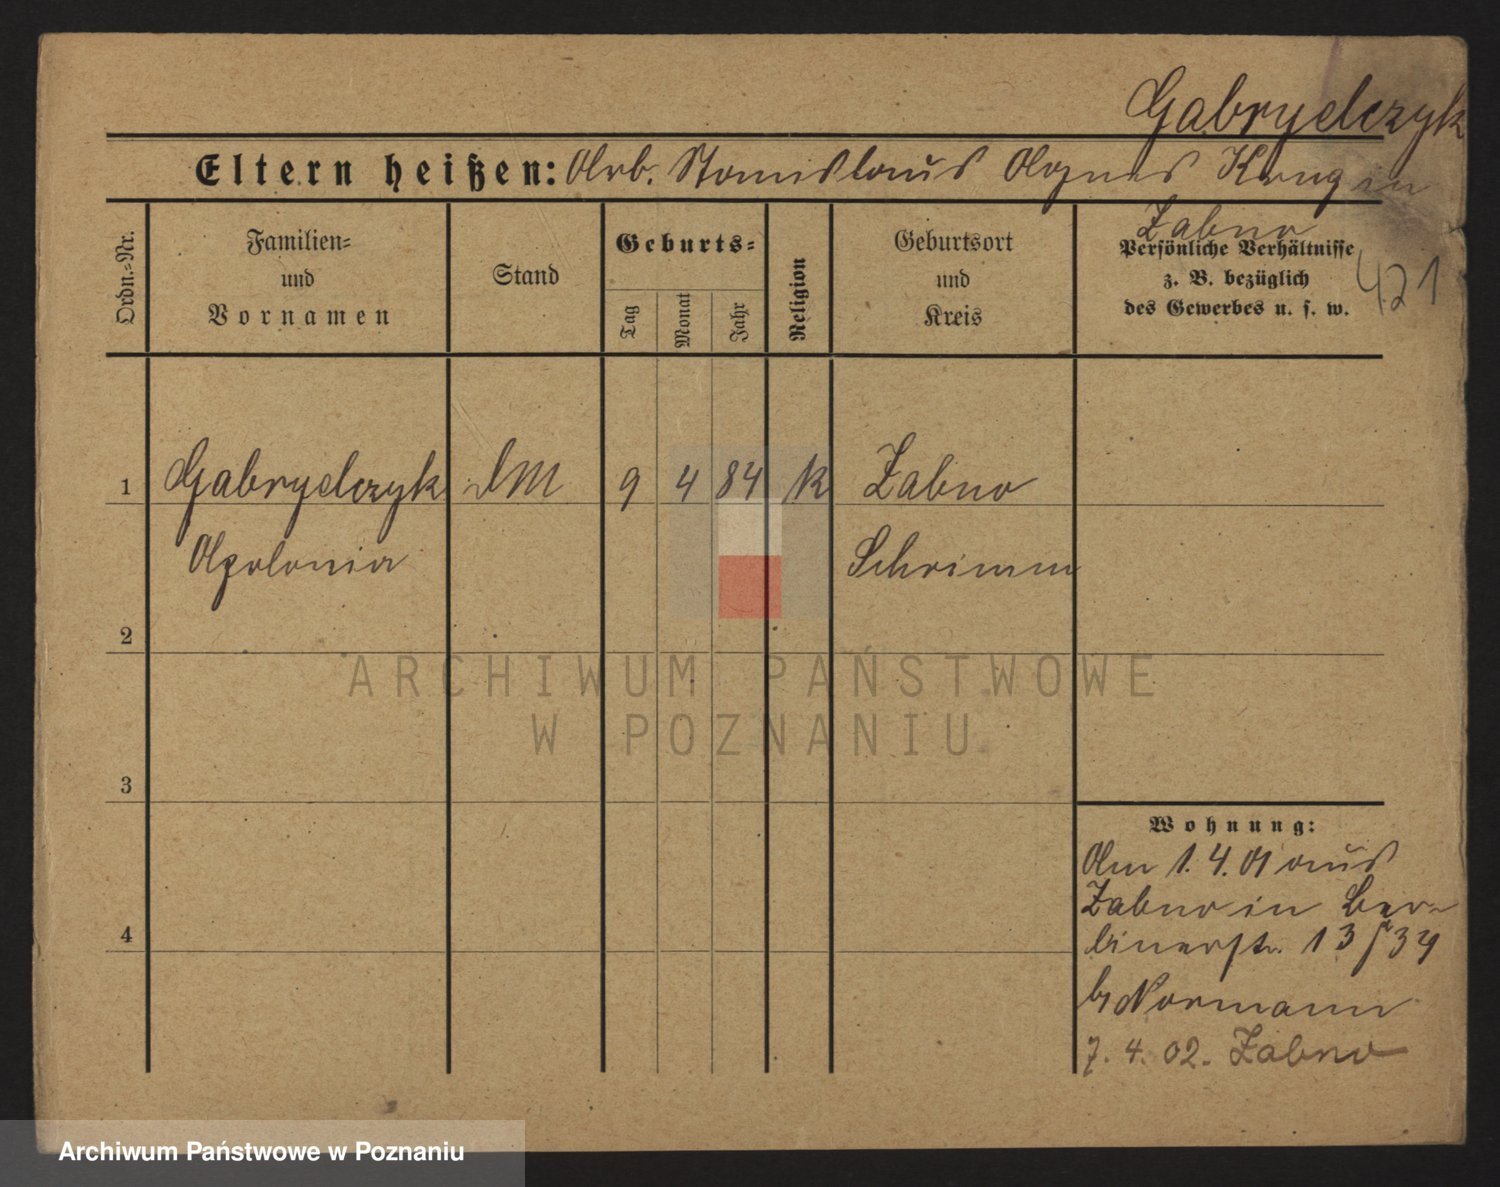 Gabryelczyk
Eltern heißen: Arb. Stanislaus Agnes Krug in
Zabno
Ordn.-Nr.
Familien-
und
Vornamen
Stand
Geburts-
Tag
Monat
Jahr
Religion
Geburtsort
und
Kreis
Persönliche Verhältnisse
z. B. bezüglich
des Gewerbes u. s. w.
421
1 Gabryelczyk DM 9 4 84 K Zabno
Apolonia Schrimm
2
3
4
Wohnung:
Am 1. 4. 01 aus
Zabno in Ber-
linerstr. 13
b/ Normann
7. 4. 02. Zabno
ARCHIWUM PAŃSTWOWE
W POZNANIU
Archiwum Państwowe w Poznaniu